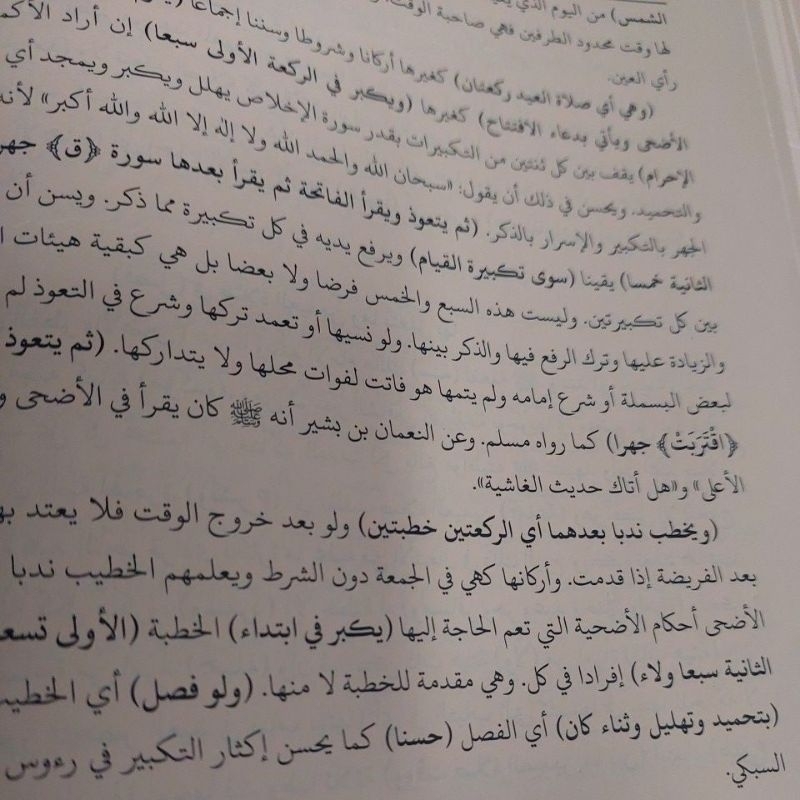 الشمس) من اليوم الذي
لها وقت محدود الطرفين فهي صاحبة الوقت
رأي العين.
(وهي أي صلاة العيد ركعتان) كغيرها أركانا وشروطا وسننا إجماعا
الأضحى ويأتي بدعاء الافتتاح) كغيرها (ويكبر في الركعة الأولى سبعا) إن أراد
الإحرام) يقف بين كل ثنتين من التكبيرات بقدر سورة الإخلاص يهلل ويكبر ويمجد أي
والتحميد. ويحسن في ذلك أن يقول: «سبحان الله والحمد الله ولا إله إلا الله والله أكبر» لأنه
الجهر بالتكبير والإسرار بالذكر. (ثم يتعوذ ويقرأ الفاتحة ثم يقرأ بعدها سورة ﴿ق﴾
الثانية خمسا) يقينا (سوى تكبيرة القيام) ويرفع يديه في كل تكبيرة مما ذكر. ويسن أن
بين كل تكبيرتين. وليست هذه السبع والخمس فرضا ولا بعضا بل هي كبقية هيئات
والزيادة عليها وترك الرفع فيها والذكر بينها. ولو نسيها أو تعمد تركها وشرع في التعوذ لم
لبعض البسملة أو شرع إمامه ولم يتمها هو فاتت لفوات محلها ولا يتداركها. (ثم يتعوذ
﴿اقْتَرَبَتْ﴾ جهرا) كما رواه مسلم. وعن النعمان بن بشير أنه ﷺ كان يقرأ في الأضحى
الأعلى» و«هل أتاك حديث الغاشية».
(ويخطب ندبا بعدهما أي الركعتين خطبتين) ولو بعد خروج الوقت فلا يعتد
بعد الفريضة إذا قدمت. وأركانها كهي في الجمعة دون الشرط ويعلمهم الخطيب ندبا
الأضحى أحكام الأضحية التي تعم الحاجة إليها (يكبر في ابتداء) الخطبة (الأولى
الثانية سبعا ولاء) إفرادا في كل. وهي مقدمة للخطبة لا منها. (ولو فصل) أي
(بتحميد وتهليل وثناء كان) أي الفصل (حسنا) كما يحسن إكثار التكبير في رءوس
السبكي.